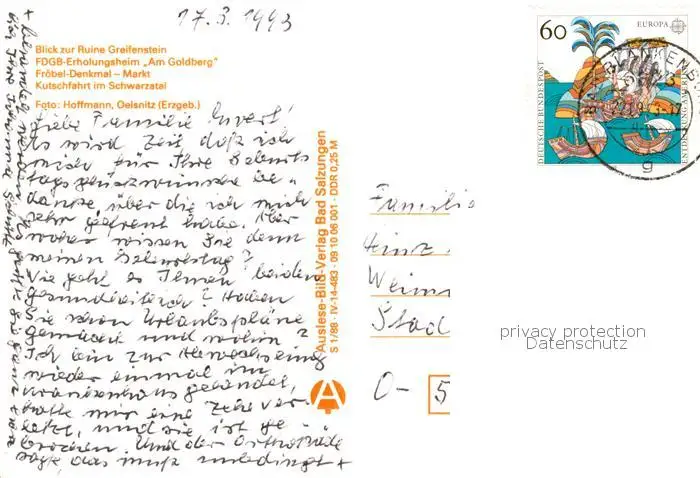 17.3.1993
Blick zur Ruine Greifenstein
FDGB-Erholungsheim „Am Goldberg"
Fröbel-Denkmal – Markt
Kutschfahrt im Schwarzatal
Foto: Hoffmann, Oelsnitz (Erzgeb.)
Liebe Familie
Es wird Zeit daß ich
mich für Ihre Geburts
tagsglückwünsche be-
danke, über die ich mich
sehr gefreut habe. Aber
woher wissen Sie denn
meinen Geburtstag?
Wie geht es Ihnen beiden
gesundheitlich? Haben
Sie schon Urlaubspläne
gemacht und wohin?
Ich bin zur Abwechslung
wieder einmal im
Krankenhaus gelandet,
hatte mir eine Zehe ver-
letzt, und sie ist ge-
brochen. Und der Orthopäde
sagte, das muß unbedingt +
Auslese-Bild-Verlag Bad Salzungen
S 1/88 · IV-14-483 · 09 10 06 001 · DDR 0,25 M
A
60
EUROPA
DEUTSCHE BUNDESPOST
BLANKENB
g
Familie
Heinz
Weim
Stad
O- 5
privacy protection
Datenschutz